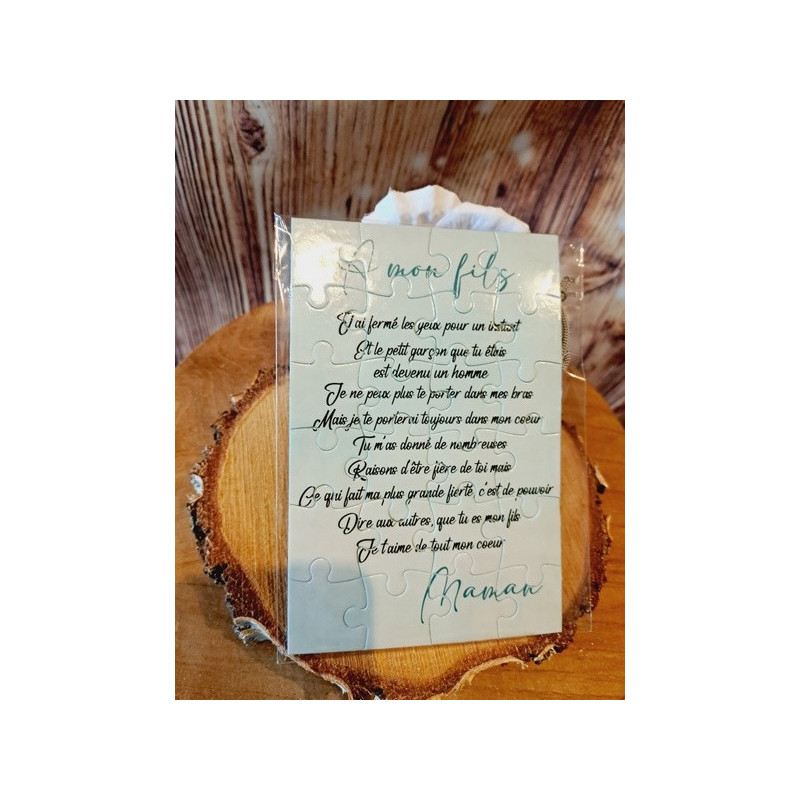 A mon fils
J'ai fermé les yeux pour un instant
Et le petit garçon que tu étais
est devenu un homme
Je ne peux plus te porter dans mes bras
Mais je te porterai toujours dans mon coeur
Tu m'as donné de nombreuses
Raisons d'être fière de toi mais
Ce qui fait ma plus grande fierté, c'est de pouvoir
Dire aux autres, que tu es mon fils
Je t'aime de tout mon coeur
Maman